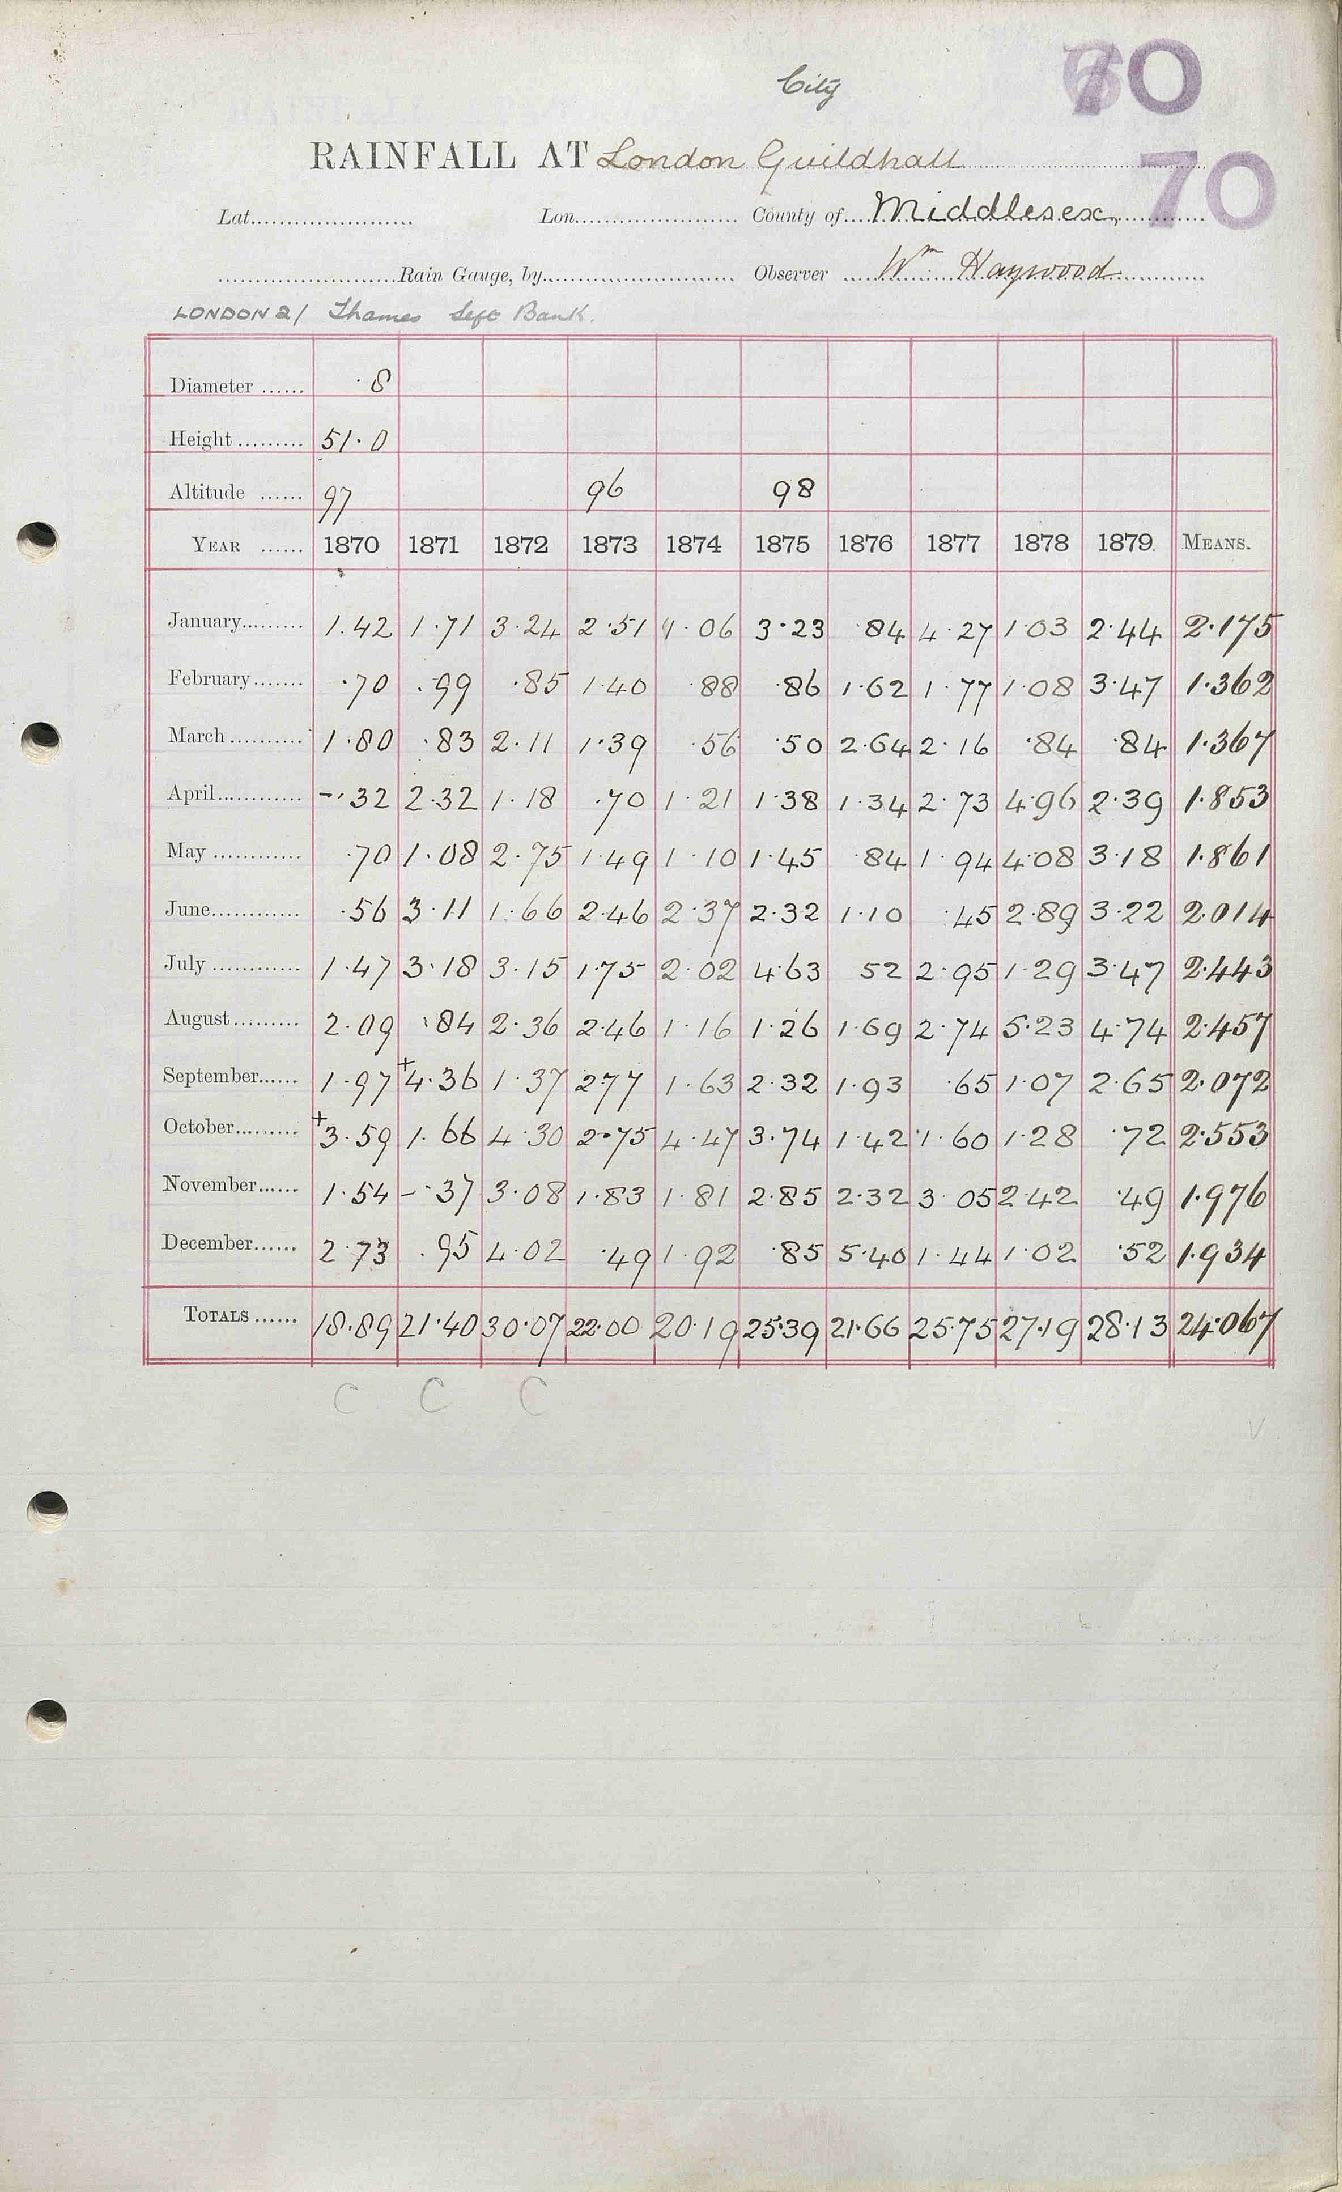 City
70
RAINFALL AT London Guildhall
70
Lat. Lon. County of Middlesex
Rain Gauge, by Observer Wm Haywood
LONDON 2/ Thames Left Bank.
Diameter ...... ·8
Height ......... 51·0
Altitude ...... 97 96 98
YEAR ...... 1870 1871 1872 1873 1874 1875 1876 1877 1878 1879 MEANS.
January......... 1.42 1·71 3·24 2·51 1·06 3·23 ·84 4·27 1·03 2·44 2·175
February....... ·70 ·99 ·85 1·40 ·88 ·86 1·62 1·77 1·08 3·47 1·362
March.......... 1·80 ·83 2·11 1·39 ·56 ·50 2·64 2·16 ·84 ·84 1·367
April............ -·32 2·32 1·18 ·70 1·21 1·38 1·34 2·73 4·96 2·39 1·853
May ............ ·70 1·08 2·75 1·49 1·10 1·45 ·84 1·94 4·08 3·18 1·861
June............ ·56 3·11 1·66 2·46 2·37 2·32 1·10 ·45 2·89 3·22 2·014
July ............ 1·47 3·18 3·15 1·75 2·02 4·63 52 2·95 1·29 3·47 2·443
August......... 2·09 ·84 2·36 2·46 1·16 1·26 1·69 2·74 5·23 4·74 2·457
September...... 1·97 +4·36 1·37 2·77 1·63 2·32 1·93 ·65 1·07 2·65 2·072
October......... +3·59 1·66 4·30 2·75 4·47 3·74 1·42 1·60 1·28 ·72 2·553
November...... 1·54 -·37 3·08 1·83 1·81 2·85 2·32 3·05 2·42 ·49 1·976
December...... 2·73 ·95 4·02 ·49 1·92 ·85 5·40 1·44 1·02 ·52 1·934
TOTALS ...... 18·89 21·40 30·07 22·00 20·19 25·39 21·66 25·75 27·19 28·13 24·067
C C C